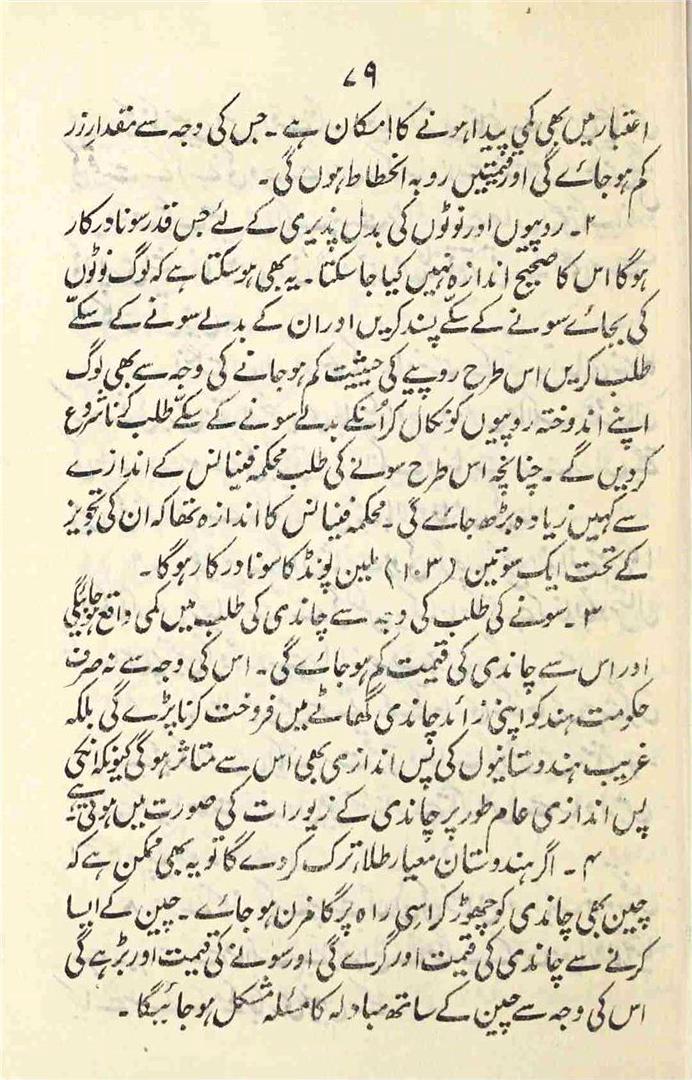 ۷۹
اعتبار میں بھی کمی پیدا ہونے کا امکان ہے۔ جس کی وجہ سے مقدار زر
کم ہو جائے گی اور قیمتیں روبہ انحطاط ہوں گی۔
۲۔ روپیوں اور نوٹوں کی بدل پذیری کے لئے جس قدر سونا درکار
ہوگا اس کا صحیح اندازہ نہیں کیا جا سکتا۔ یہ بھی ہو سکتا ہے کہ لوگ نوٹوں
کی بجائے سونے کے سکّے پسند کریں اور ان کے بدلے سونے کے سکّے
طلب کریں اس طرح روپیے کی حیثیت کم ہو جانے کی وجہ سے بھی لوگ
اپنے اندوختہ روپیوں کو نکال کر اُنکے بدلے سونے کے سکّے طلب کرنا شروع
کر دیں گے۔ چنانچہ اس طرح سونے کی طلب محکمہ فینانس کے اندازے
سے کہیں زیادہ بڑھ جائے گی۔ محکمہ فینانس کا اندازہ تھا کہ ان کی تجویز
کے تحت ایک سو تین (۱۰۳) ملین پونڈ کا سونا درکار ہوگا۔
۳۔ سونے کی طلب کی وجہ سے چاندی کی طلب میں کمی واقع ہو جائیگی
اور اس سے چاندی کی قیمت کم ہو جائے گی۔ اس کی وجہ سے نہ صرف
حکومت ہند کو اپنی زائد چاندی گھاٹے میں فروخت کرنا پڑے گی بلکہ
غریب ہندوستانیوں کی پس اندازی بھی اس سے متاثر ہوگی کیونکہ انکی
پس اندازی عام طور پر چاندی کے زیورات کی صورت میں ہوتی ہے۔
۴۔ اگر ہندوستان معیار طلاء ترک کر دے گا تو یہ بھی ممکن ہے کہ
چین بھی چاندی کو چھوڑ کر اسی راہ پر گامزن ہو جائے۔ چین کے ایسا
کرنے سے چاندی کی قیمت اور گرے گی اور سونے کی قیمت اور بڑہے گی
اس کی وجہ سے چین کے ساتھ مبادلہ کا مسئلہ مشکل ہو جائیگا۔